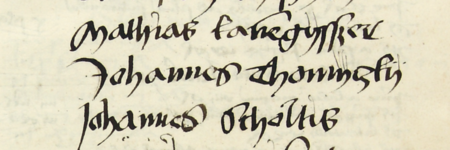 Mathias kanegysser
Johannes Thomitzky
Johannes Scholtis